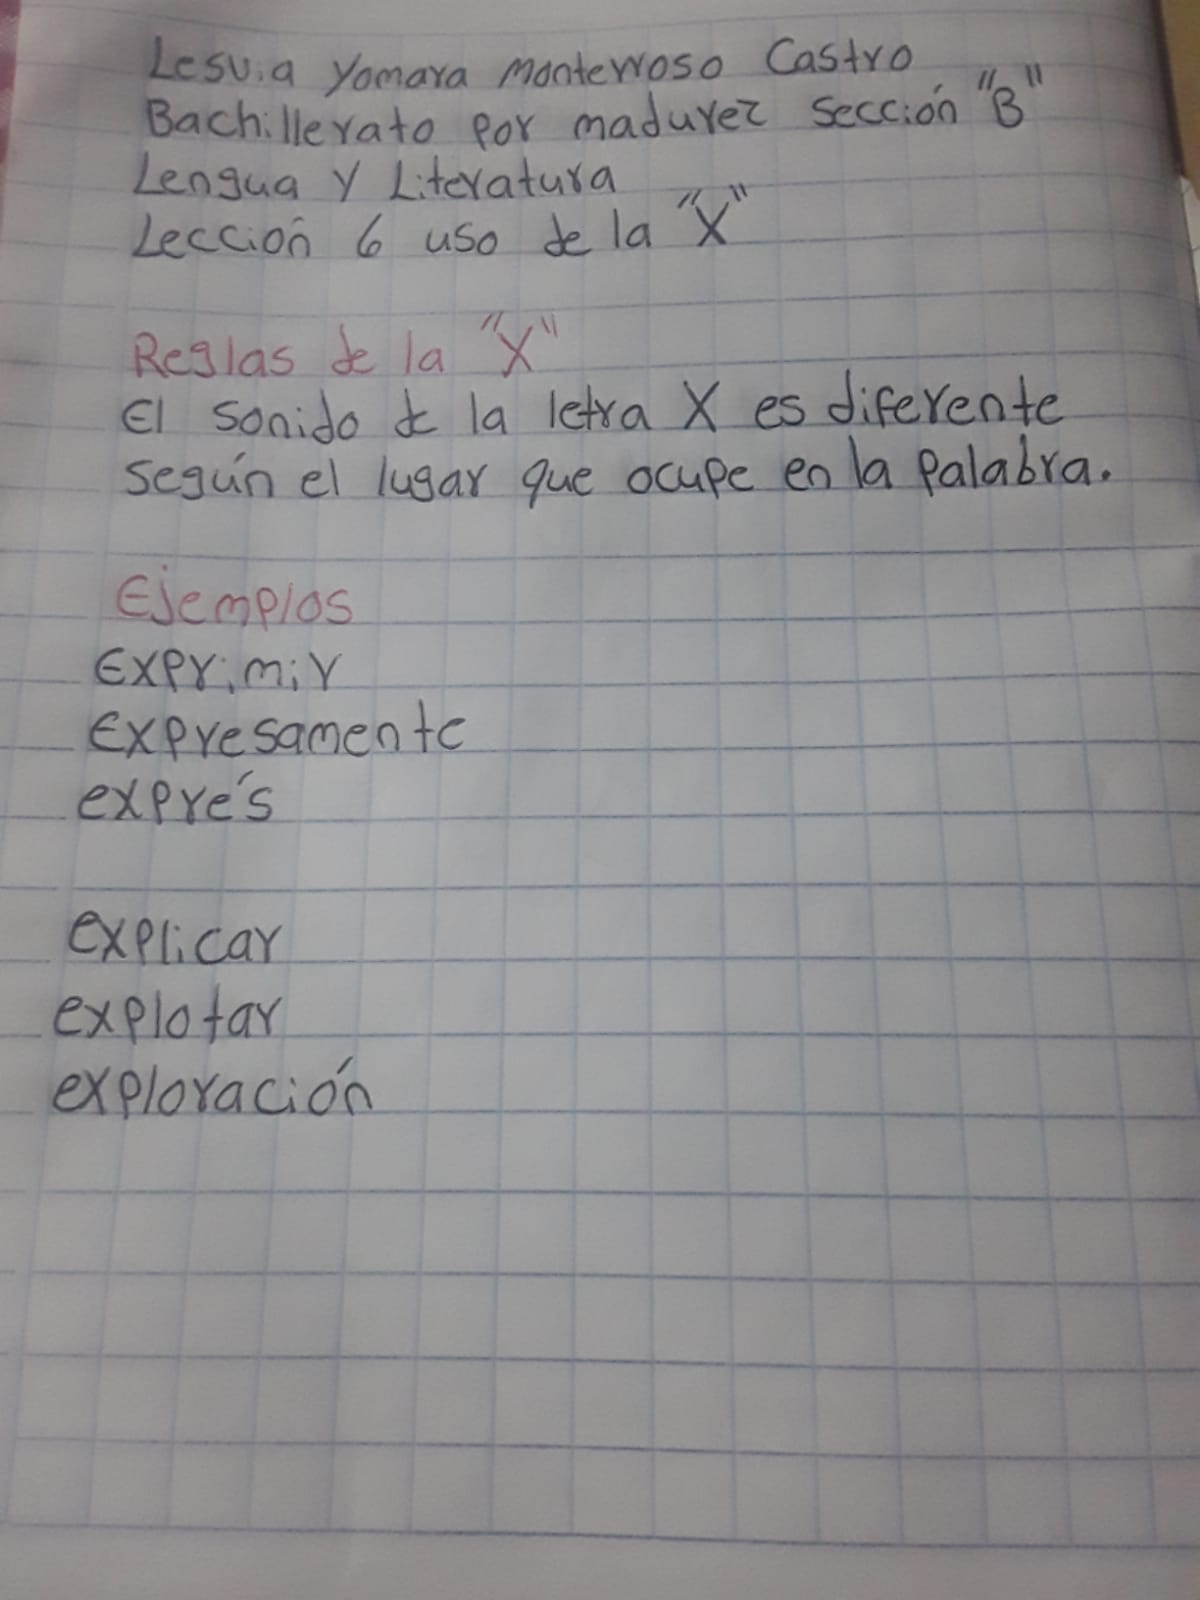 Lesvia Yomara Monterroso Castro
Bachillerato por madurez Sección "B"
Lengua y Literatura
Lección 6 uso de la "X"
Reglas de la "X"
El sonido de la letra X es diferente
según el lugar que ocupe en la palabra.
Ejemplos
Exprimir
Expresamente
exprés
explicar
explotar
exploración